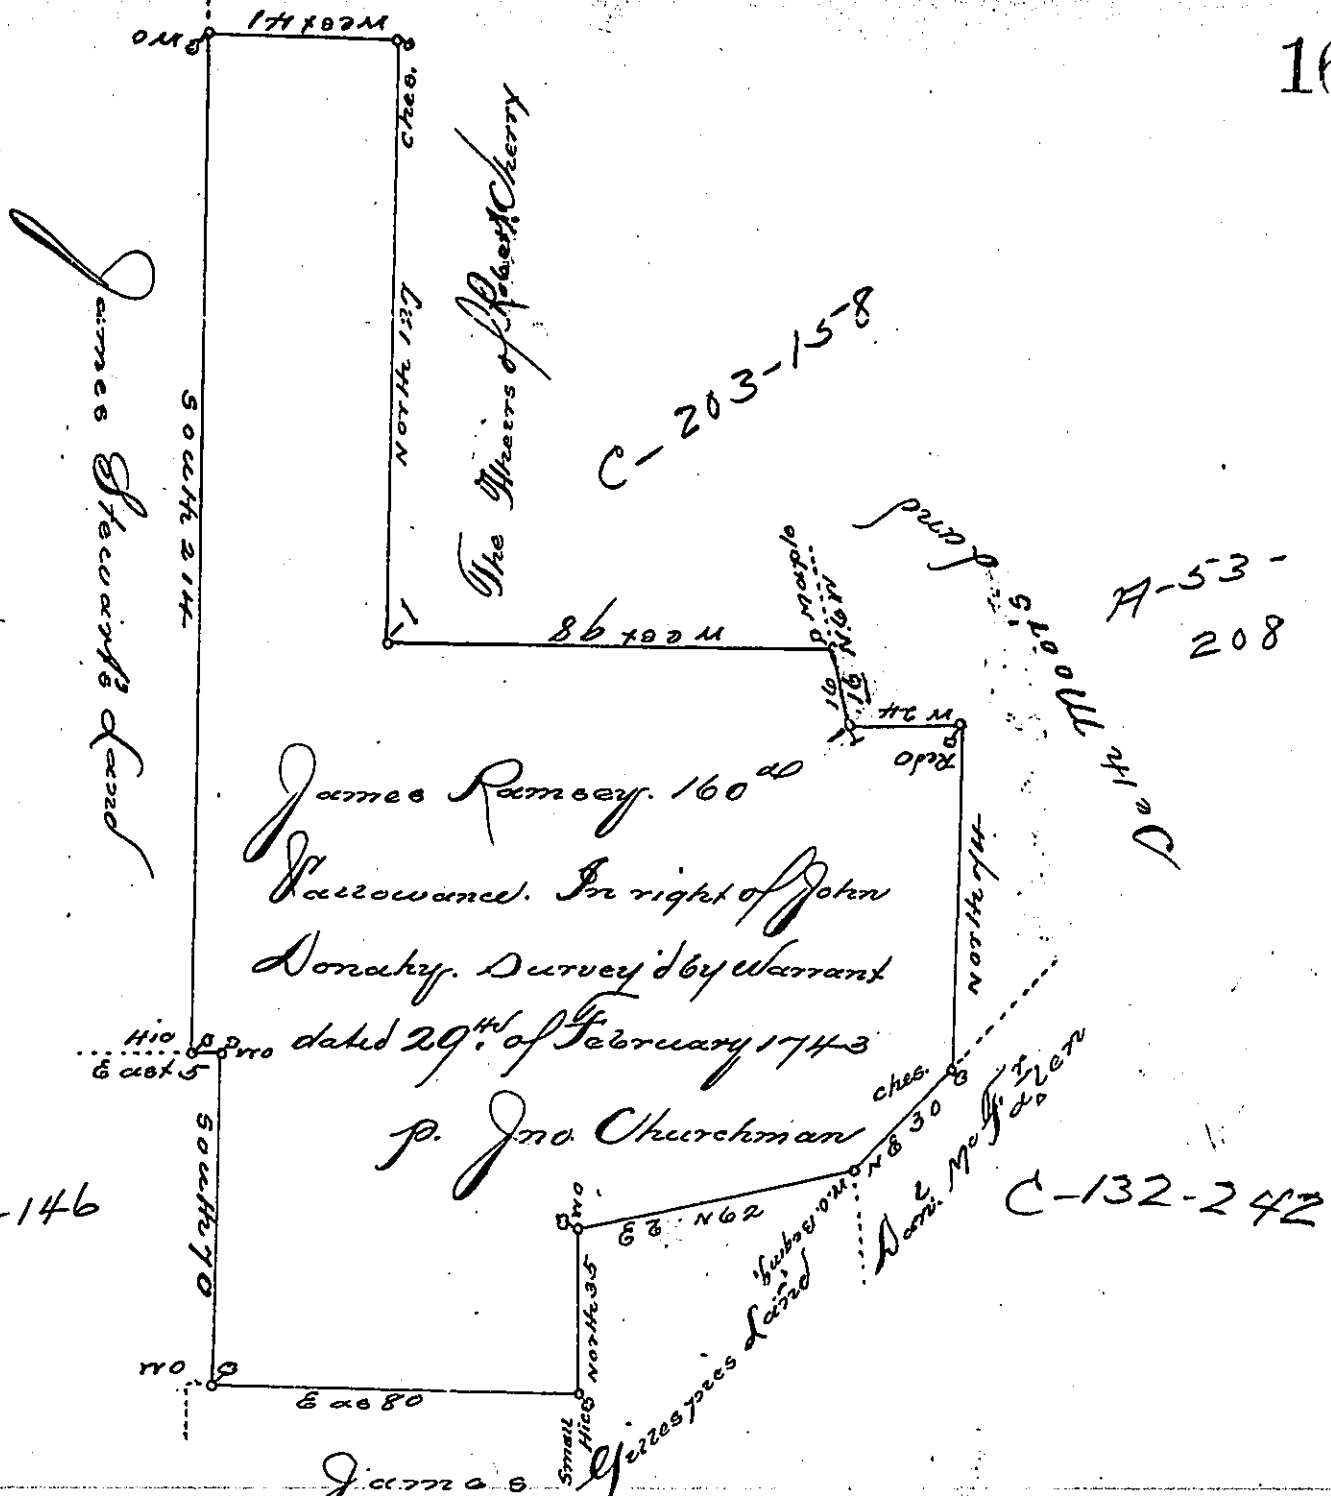 16
WO
West 41
ches.
North 127
The Heirs of Robert Cherry
C-203-158
James Stewart's Land
South 214
West 98
Maple
N 16 W
16
16
W 24
Redo
Moor's Land
A-53-
208
North 74
James Ramsey. 160 ac
&allowance. In right of John
Donahy. Survey'd by Warrant
dated 29th of February 1743
p. Jno. Churchman
Hio
East 5
WO
South 70
-146
ches.
N E 30
Danl. McF
C-132-242
WO
N 62 E
W.O. Begin'g.
North 35
WO
Eas 80
Small
Hico
James Gillespies Land